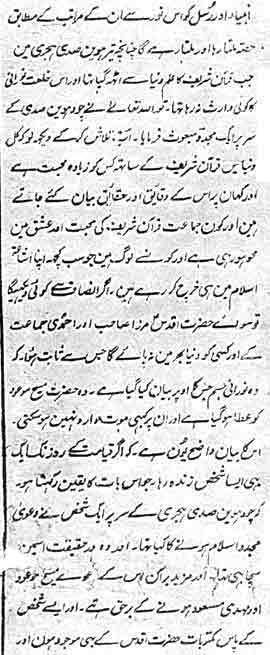 انبیاء اور رسل کو اس نور سے ان کے مراتب کے مطابق
حصہ ملتا رہا اور ملتا رہے گا چنانچہ تیرھوین صدی ہجری مین
جب قرآن شریف کا علم دنیا سے اٹھ گیا تھا اور اس خلعت نورانی
کا کوئی وارث نہ رہا تھا۔ تو اللہ تعالےٰ نے چودھوین صدی کے
سر پر ایک مجدد مبعوث فرمایا۔ اسے تلاش کر کے دیکھو تو کل
دنیا مین قرآن شریف کے ساتھ کس کو زیادہ محبت ہے
اور کہان پر اس کے دقایق اور حقایق بیان کئے جاتے
ہین اور کون جماعت قرآن شریف کی محبت اور عشق مین
محو ہو رہی ہے اور کونسے لوگ ہین جو سب کچھ اپنا
اسلام مین ہی خرچ کر رہے ہین، اگر انصاف سے کوئی دیکھیگا
تو سوائے حضرت اقدس مرزا صاحب اور احمدی جماعت
کے اور کسی کو دنیا بھر مین نہ پائے گا جس سے ثابت ہوا۔ کہ
وہ نورانی جسم جس کا اوپر بیان کیا گیا ہے۔ وہ حضرت مسیح موعود
کو عطا ہو گیا ہے اور ان پر کبھی موت وارد نہین ہو سکتی۔
اس کا بیان واضح یون ہے۔ کہ اگر قیامت کے روز تک ایک
ہی ایسا شخص زندہ رہا جو اس بات کا یقین رکھتا ہو۔
کہ چودھوین صدی ہجری کے سر پر ایک شخص نے دعوی
مجدد اسلام ہونے کا کیا تھا۔ اور وہ در حقیقت اسمین
سچا ہی تھا اور مزید بران اس کے دعوے مسیح موعود
اور مہدی مسعود ہونے کے برحق تھے۔ اور ایسے شخص
کے پاس حضرت اقدس کے بھی موجود ہون اور